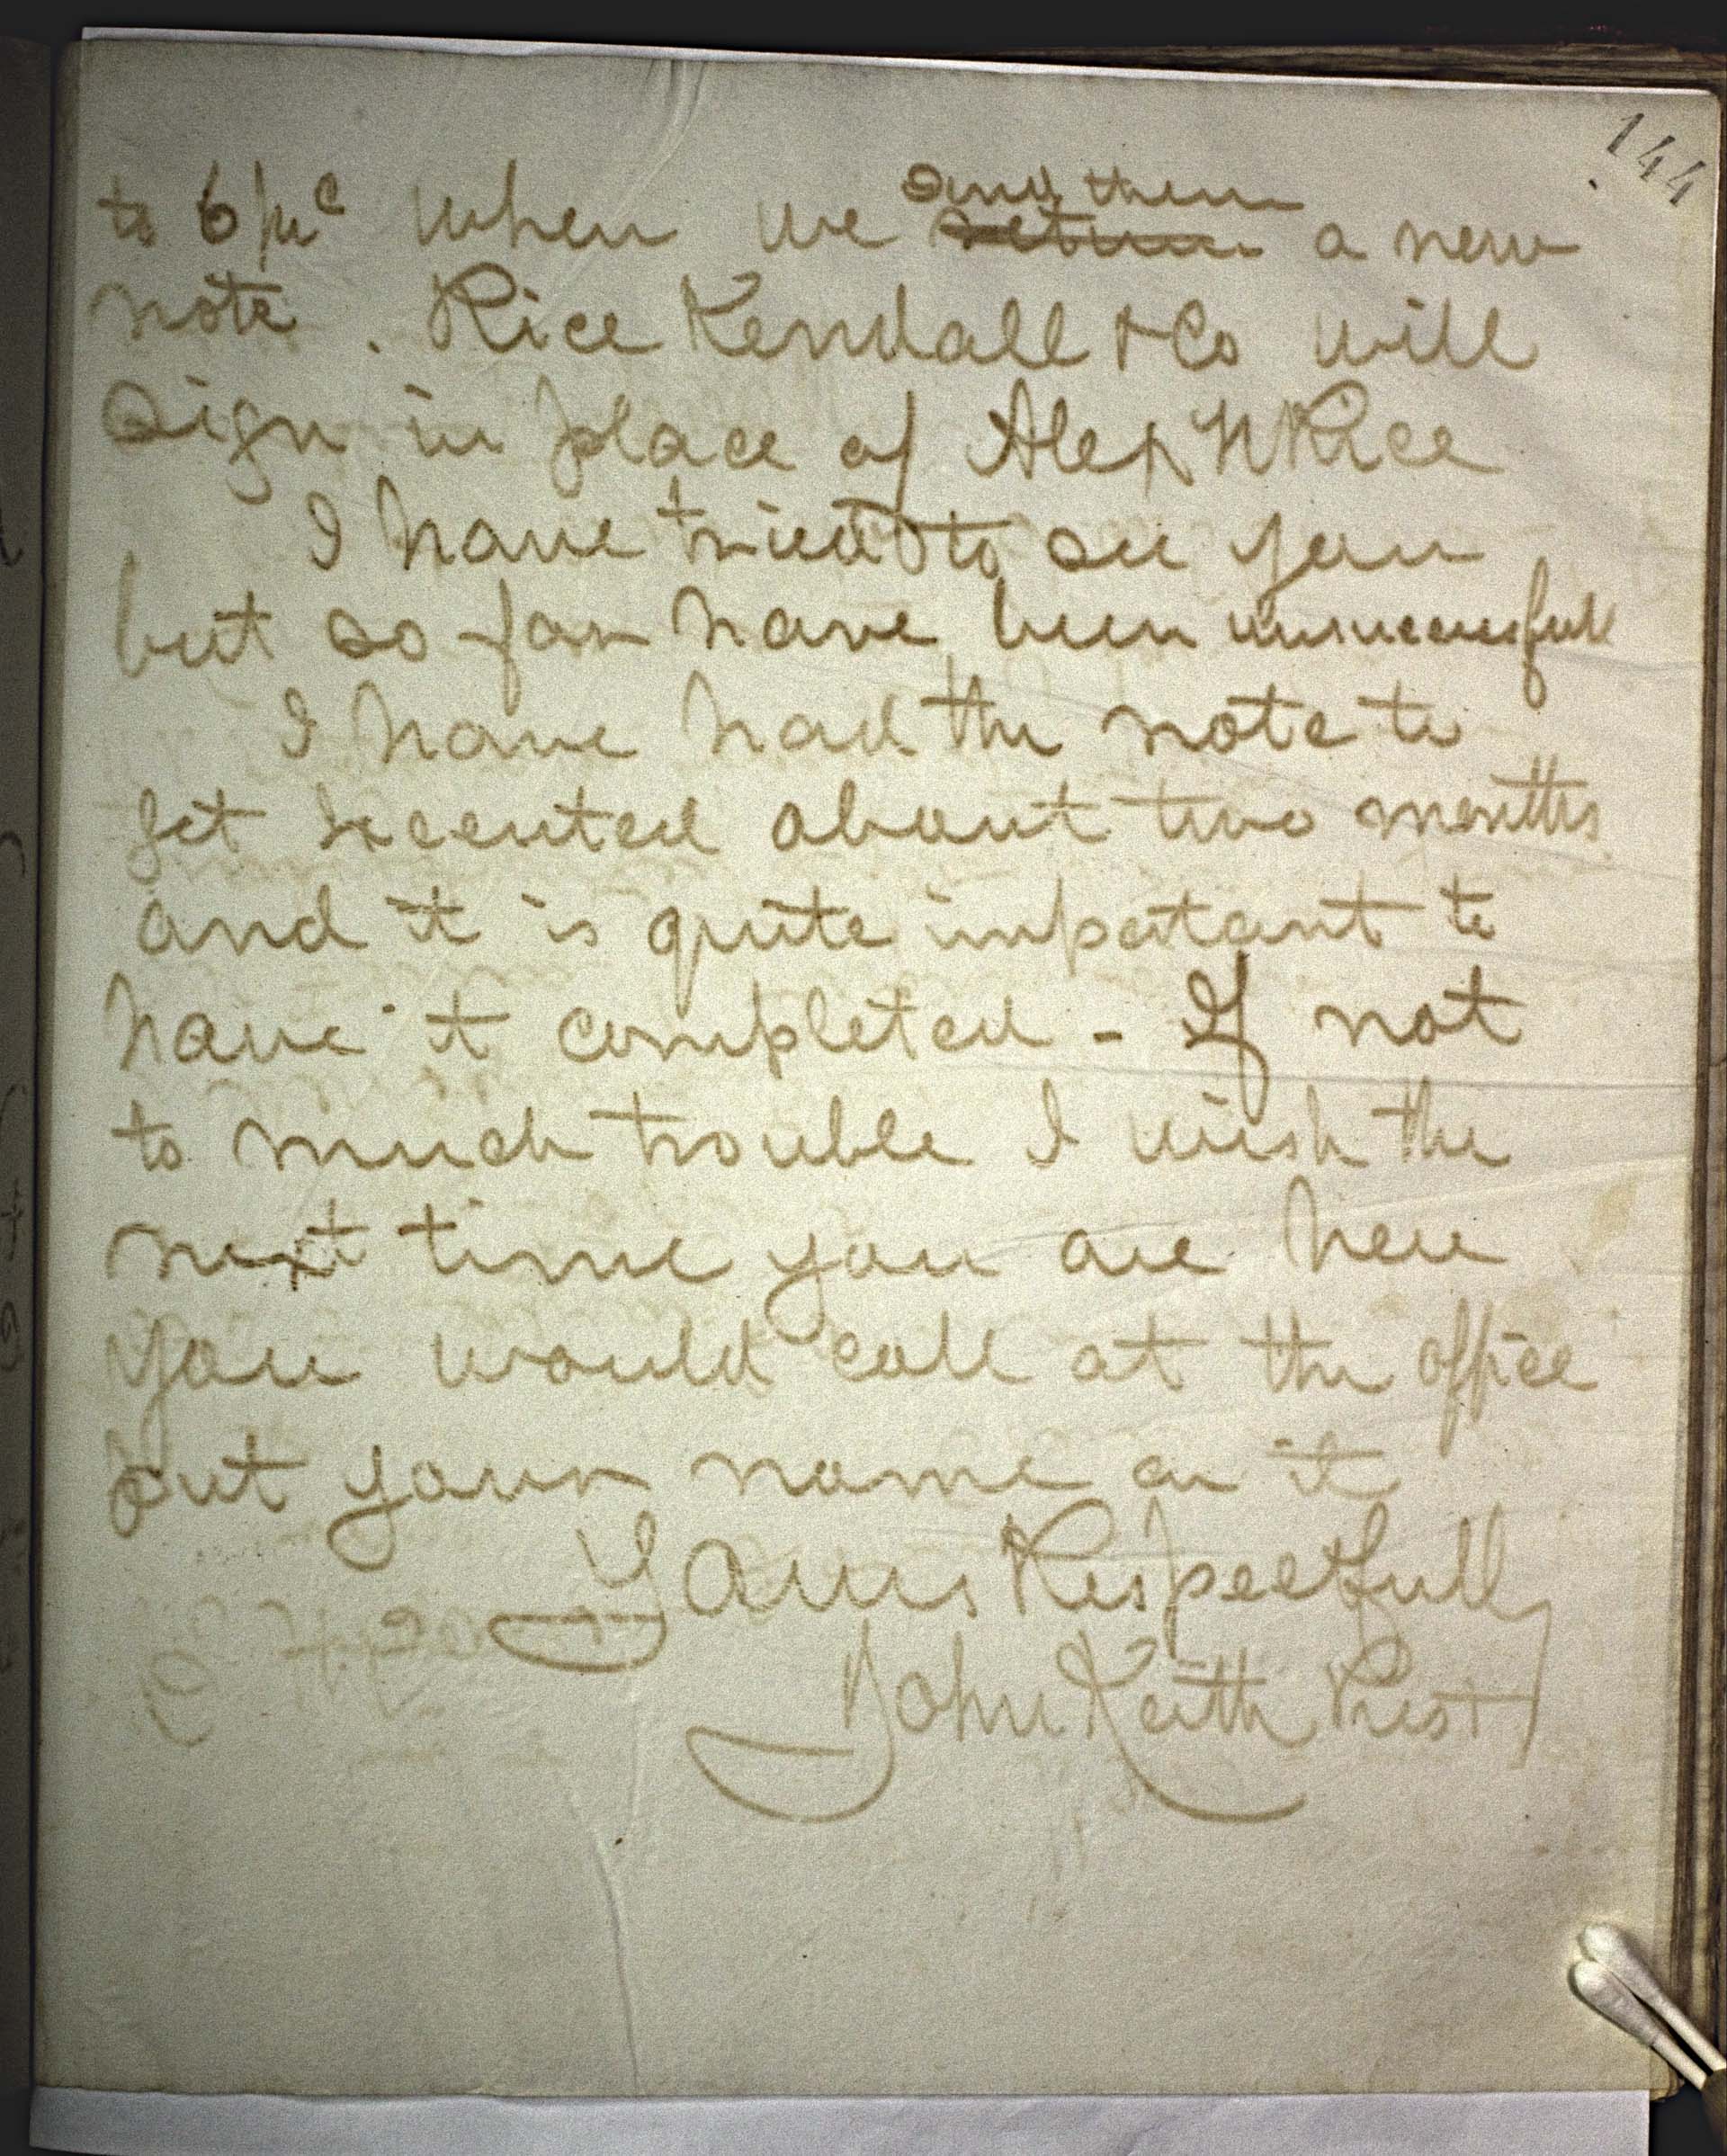 144
to 6 pr c when we send them ~~return~~ a new
note. Rice Kendall & Co will
sign in place of Alex H Rice
I have tried to see you
but so far have been unsuccessfull
I have had the note to
get executed about two months
and it is quite important to
have it completed - If not
to much trouble I wish the
next time you are here
you would call at the office
put your name on it
Yours Respectfully
John Keith Prest